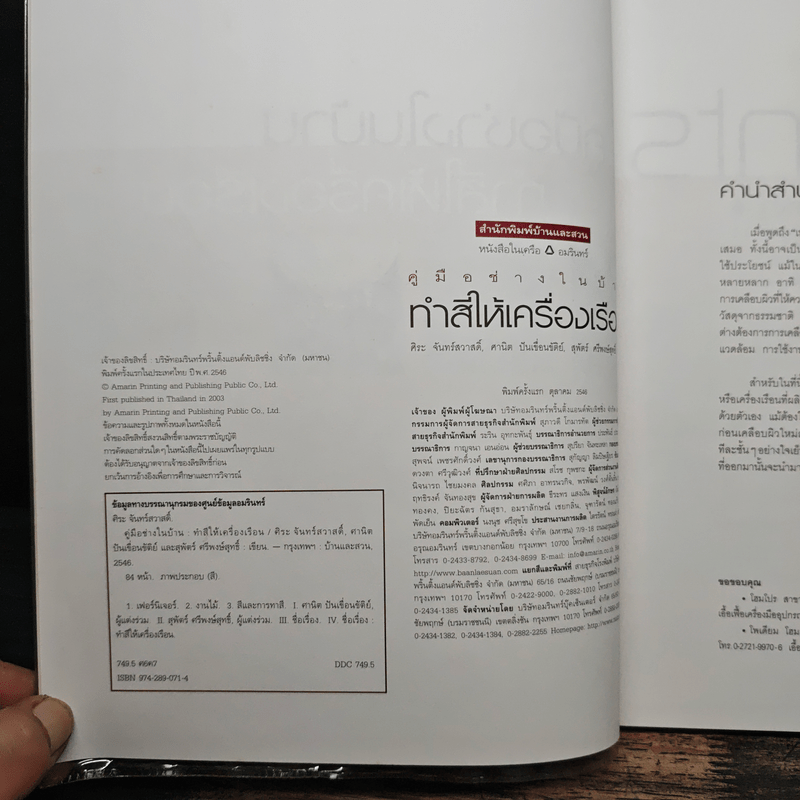 สำนักพิมพ์บ้านและสวน
หนังสือในเครือ อมรินทร์
คู่มือช่างในบ้า
ทำสีให้เครื่องเรือ
ศิระ จันทร์สวาสดิ์, ศานิต ปันเขื่อนขัติย์, สุพัตร์ ศรีพงษ์สุทธิ์
พิมพ์ครั้งแรก ตุลาคม 2546
เจ้าของลิขสิทธิ์ : บริษัทอมรินทร์พริ้นติ้งแอนด์พับลิชชิ่ง จำกัด (มหาชน)
พิมพ์ครั้งแรกในประเทศไทย ปี พ.ศ. 2546
© Amarin Printing and Publishing Public Co., Ltd
First published in Thailand in 2003
by Amarin Printing and Publishing Public Co., Ltd.
ข้อความและรูปภาพทั้งหมดในหนังสือนี้
เจ้าของลิขสิทธิ์สงวนสิทธิ์ตามพระราชบัญญัติ
การคัดลอกส่วนใดๆ ในหนังสือนี้ไปเผยแพร่ในทุกรูปแบบ
ต้องได้รับอนุญาตจากเจ้าของลิขสิทธิ์ก่อน
ยกเว้นการอ้างอิงเพื่อการศึกษาและการวิจารณ์
ข้อมูลทางบรรณานุกรมของศูนย์ข้อมูลอมรินทร์
ศิระ จันทร์สวาสดิ์.
คู่มือช่างในบ้าน : ทำสีให้เครื่องเรือน / ศิระ จันทร์สวาสดิ์, ศานิต
ปันเขื่อนขัติย์ และสุพัตร์ ศรีพงษ์สุทธิ์ : เขียน. — กรุงเทพฯ : บ้านและสวน,
2546.
84 หน้า. ภาพประกอบ (สี).
1. เฟอร์นิเจอร์. 2. งานไม้. 3. สีและการทาสี. I. ศานิต ปันเขื่อนขัติย์,
ผู้แต่งร่วม. II. สุพัตร์ ศรีพงษ์สุทธิ์, ผู้แต่งร่วม. III. ชื่อเรื่อง. IV. ชื่อเรื่อง :
ทำสีให้เครื่องเรือน.
749.5 DDC 749.5
ISBN 974-289-071-4
เจ้าของ ผู้พิมพ์ผู้โฆษณา บริษัทอมรินทร์พริ้นติ้งแอนด์พับลิชชิ่ง
กรรมการผู้จัดการสายธุรกิจสำนักพิมพ์ สุภาวดี โกมารทัต
สายธุรกิจสำนักพิมพ์ ระริน อุทกะพันธุ์ บรรณาธิการอำนวยการ
บรรณาธิการ กาญจนา เอนอ่อน ผู้ช่วยบรรณาธิการ สุปรียา
สุพจน์ เพชรศักดิ์วงศ์ เลขานุการกองบรรณาธิการ สุกัญญา
ดวงตา ศรีวุฒิวงศ์ ที่ปรึกษาฝ่ายศิลปกรรม สโรช
นิจนารถ ไชยมงคล ศิลปกรรม
ฤทธิรงค์ จันทองสุข ผู้จัดการฝ่ายการผลิต ธีระพร แสงเงิน
ทองคง, ปิยะฉัตร กันสุธา,
พัดเย็น คอมพิวเตอร์ นงนุช ศรีสุขโข ประสานงานการผลิต
บริษัทอมรินทร์พริ้นติ้งแอนด์พับลิชชิ่ง จำกัด (มหาชน) 7/9-18
อรุณอมรินทร์ เขตบางกอกน้อย กรุงเทพฯ 10700 โทรศัพท์
โทรสาร 0-2433-8792, 0-2434-8699 E-mail: info@amarin.co.th
http://www.baanlaesuan.com แยกสีและพิมพ์ที่ สายธุรกิจโรงพิมพ์
พริ้นติ้งแอนด์พับลิชชิ่ง จำกัด (มหาชน) 65/16 ถนนชัยพฤกษ์
กรุงเทพฯ 10170 โทรศัพท์ 0-2422-9000, 0-2882-1010 โทรสาร
0-2434-1385 จัดจำหน่ายโดย บริษัทอมรินทร์บุ๊คเซ็นเตอร์ จำกัด
ชัยพฤกษ์ (บรมราชชนนี) เขตตลิ่งชัน กรุงเทพฯ 10170 โทรศัพท์
0-2434-1382, 0-2434-1384, 0-2882-2255 Homepage: http://www.
คำนำสำน
เมื่อพูดถึง
เสมอ ทั้งนี้อาจเป็น
ใช้ประโยชน์ แม้ใน
หลายหลาก อาทิ
การเคลือบผิวที่ให้คว
วัสดุจากธรรมชาติ
ต่างต้องการการเคลื
แวดล้อม การใช้งาน
สำหรับในที่นี้
หรือเครื่องเรือนที่ผลิ
ด้วยตัวเอง แม้ต้อง
ก่อนเคลือบผิวใหม่
ทีละชั้นๆ อย่างใจเย็
ที่ออกมานั้นจะนำมา
ขอขอบคุณ
• โฮมโปร สาขา
เอื้อเฟื้อเครื่องมืออุปกรณ์
• โพเดียม โฮม
โทร. 0-2721-9970-6 เอื้